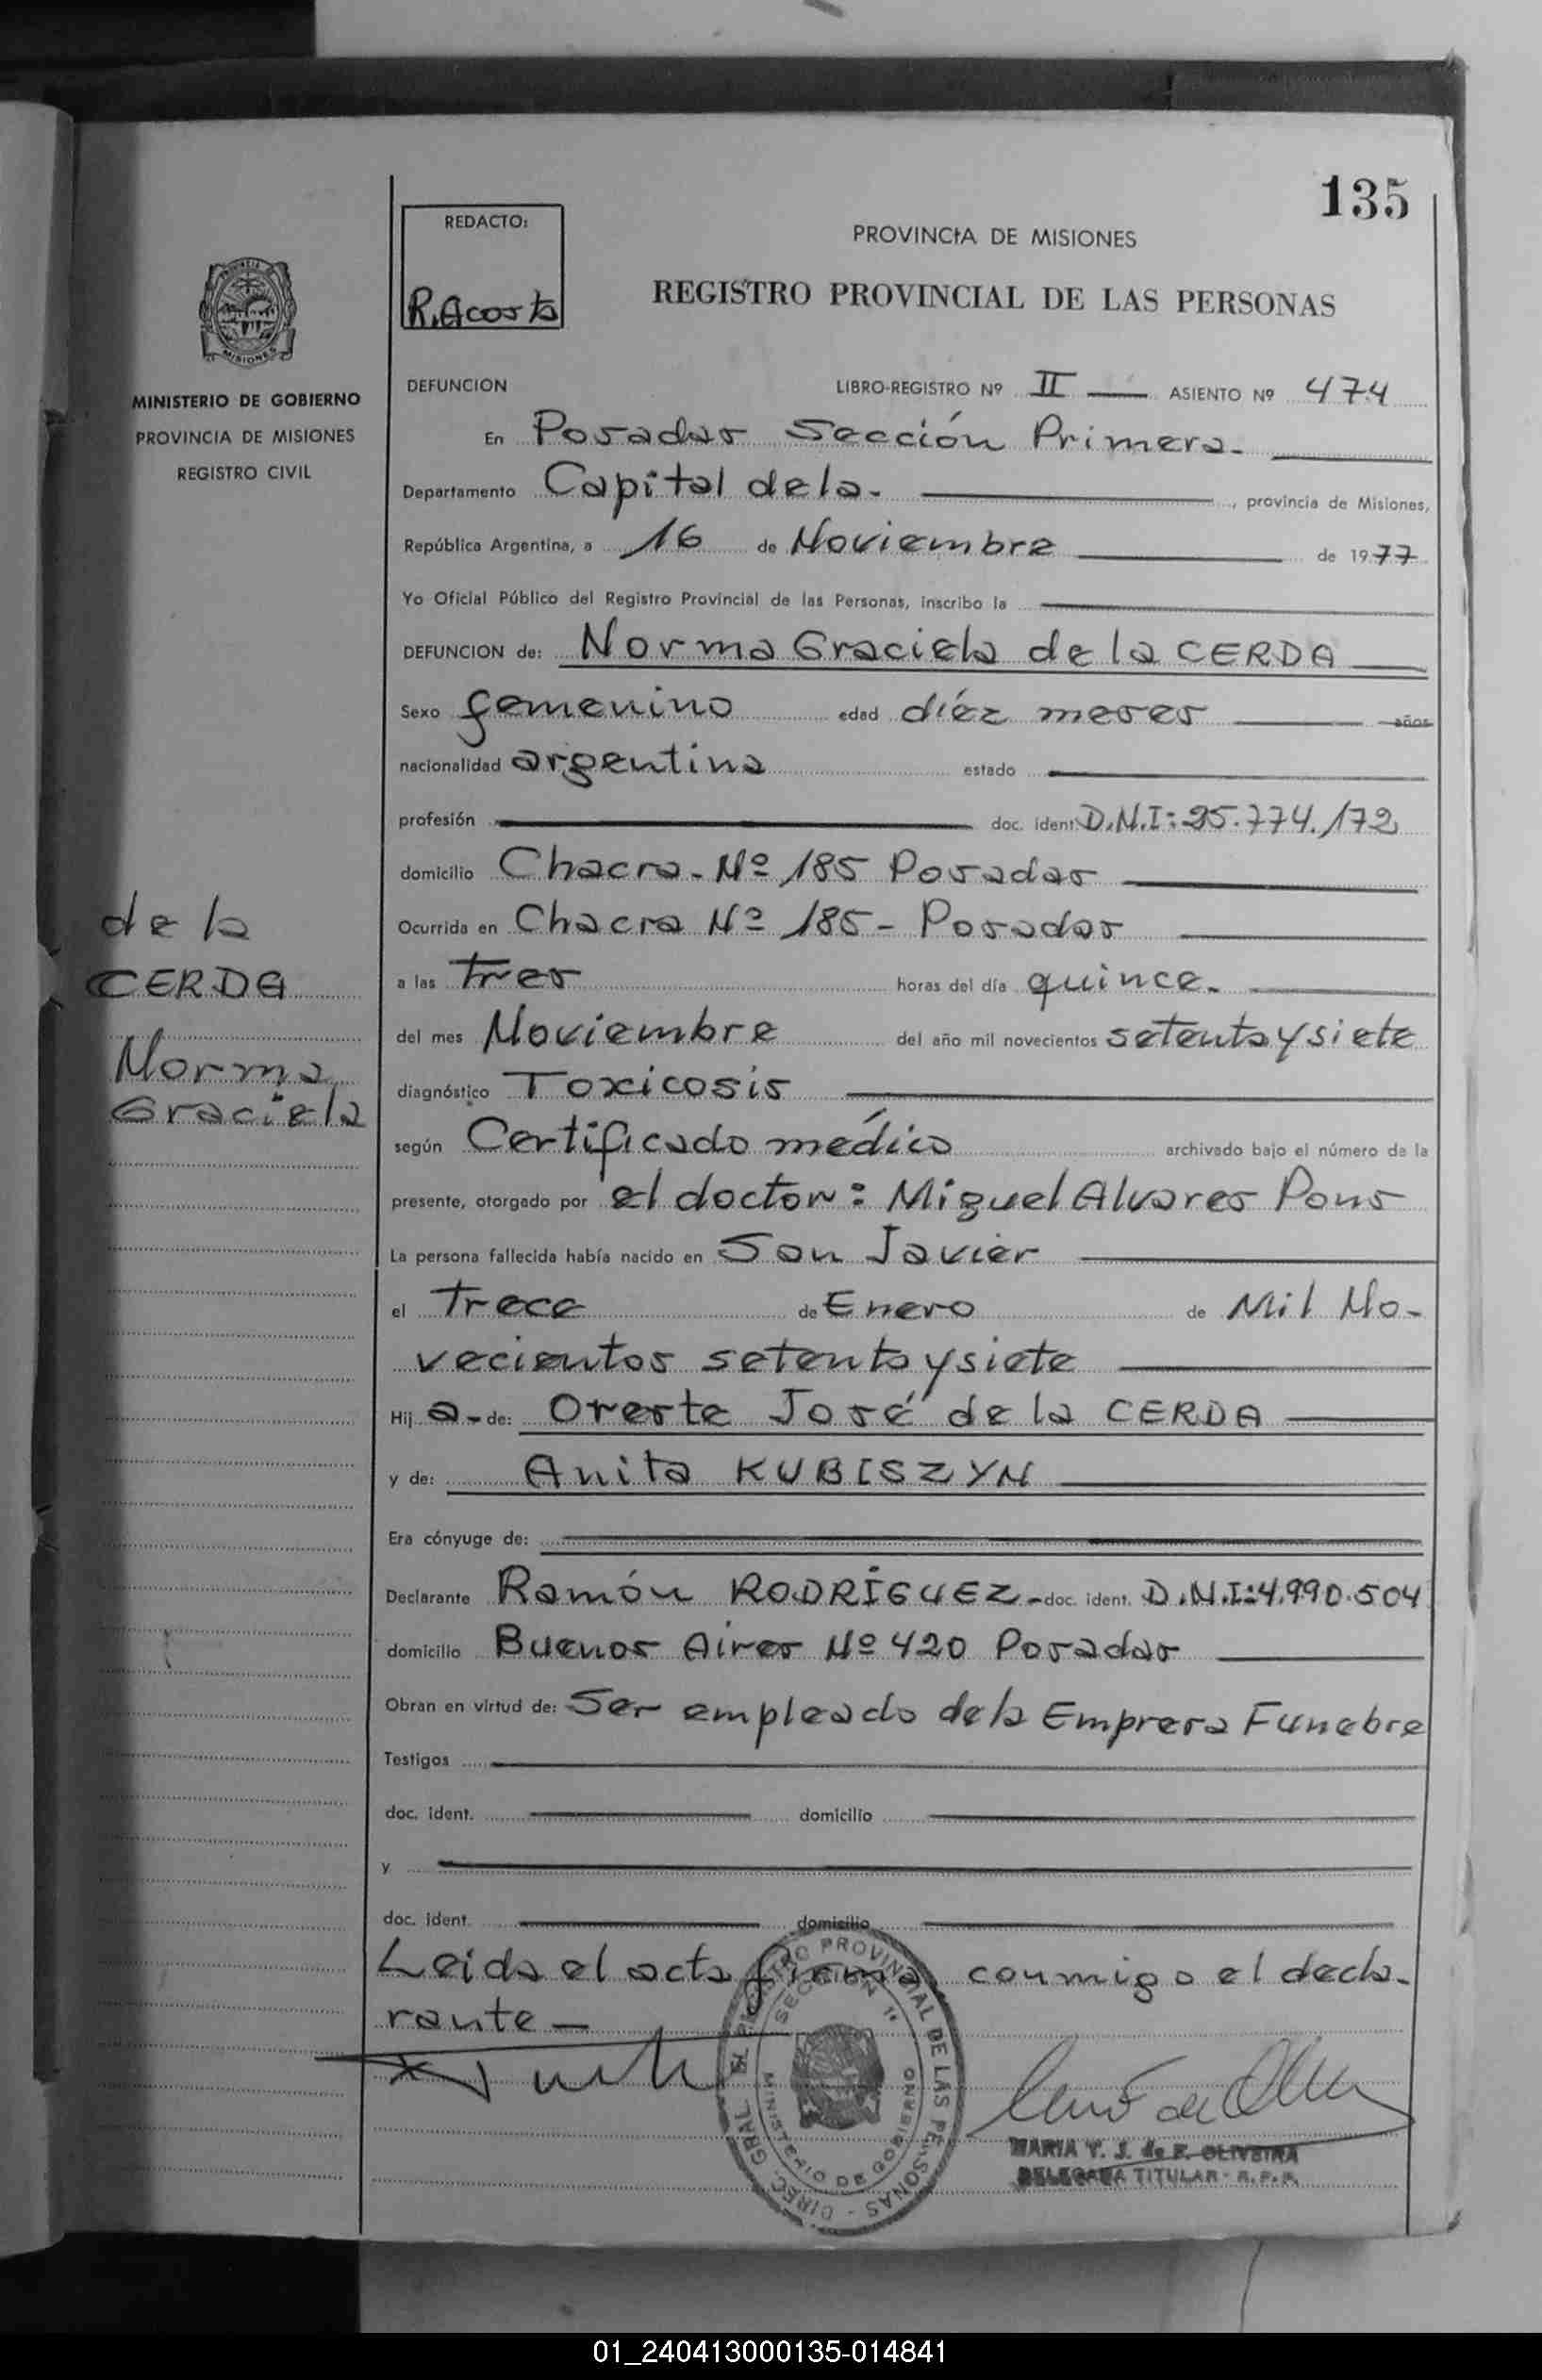 135
REDACTO:
R. Acosta
PROVINCIA DE MISIONES
REGISTRO PROVINCIAL DE LAS PERSONAS
MISIONES
MINISTERIO DE GOBIERNO
PROVINCIA DE MISIONES
REGISTRO CIVIL
DEFUNCION LIBRO-REGISTRO Nº II ASIENTO Nº 474
En Posadas Sección Primera.
Departamento Capital de la. , provincia de Misiones,
República Argentina, a 16 de Noviembre de 1977
Yo Oficial Público del Registro Provincial de las Personas, inscribo la
DEFUNCION de: Norma Graciela de la CERDA
Sexo femenino edad diéz meses años
nacionalidad argentina estado
profesión doc. ident. D.N.I: 25.774.172
domicilio Chacra. Nº 185 Posadas
Ocurrida en Chacra Nº 185 - Posadas
a las tres horas del día quince.
del mes Noviembre del año mil novecientos setenta y siete
diagnóstico Toxicosis
según Certificado médico archivado bajo el número de la
presente, otorgado por el doctor: Miguel Alvares Pons
La persona fallecida había nacido en San Javier
el trece de Enero de Mil No-
vecientos setenta y siete
Hij a - de: Oreste José de la CERDA
y de: Anita KUBISZYN
Era cónyuge de:
Declarante Ramón RODRÍGUEZ - doc. ident. D.N.I: 4.990.504
domicilio Buenos Aires Nº 420 Posadas
Obran en virtud de: Ser empleado de la Empresa Funebre
Testigos
doc. ident. domicilio
y
doc. ident. domicilio
Leida el acta firma, conmigo el decla-
rante -
de la
CERDA
Norma
Graciela
DIREC. GRAL. REGISTRO PROVINCIAL DE LAS PERSONAS
SECCION 1ª
MINISTERIO DE GOBIERNO
MARIA Y. J. de F. OLIVEIRA
DELEGADA TITULAR - R.P.P.
01_240413000135-014841